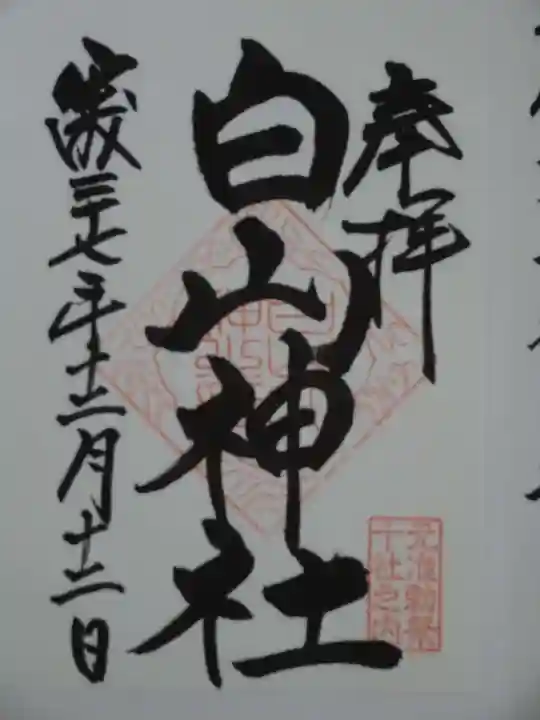 奉拝
白山神社
元准勅祭
十社之内
平成二十七年十二月十二日